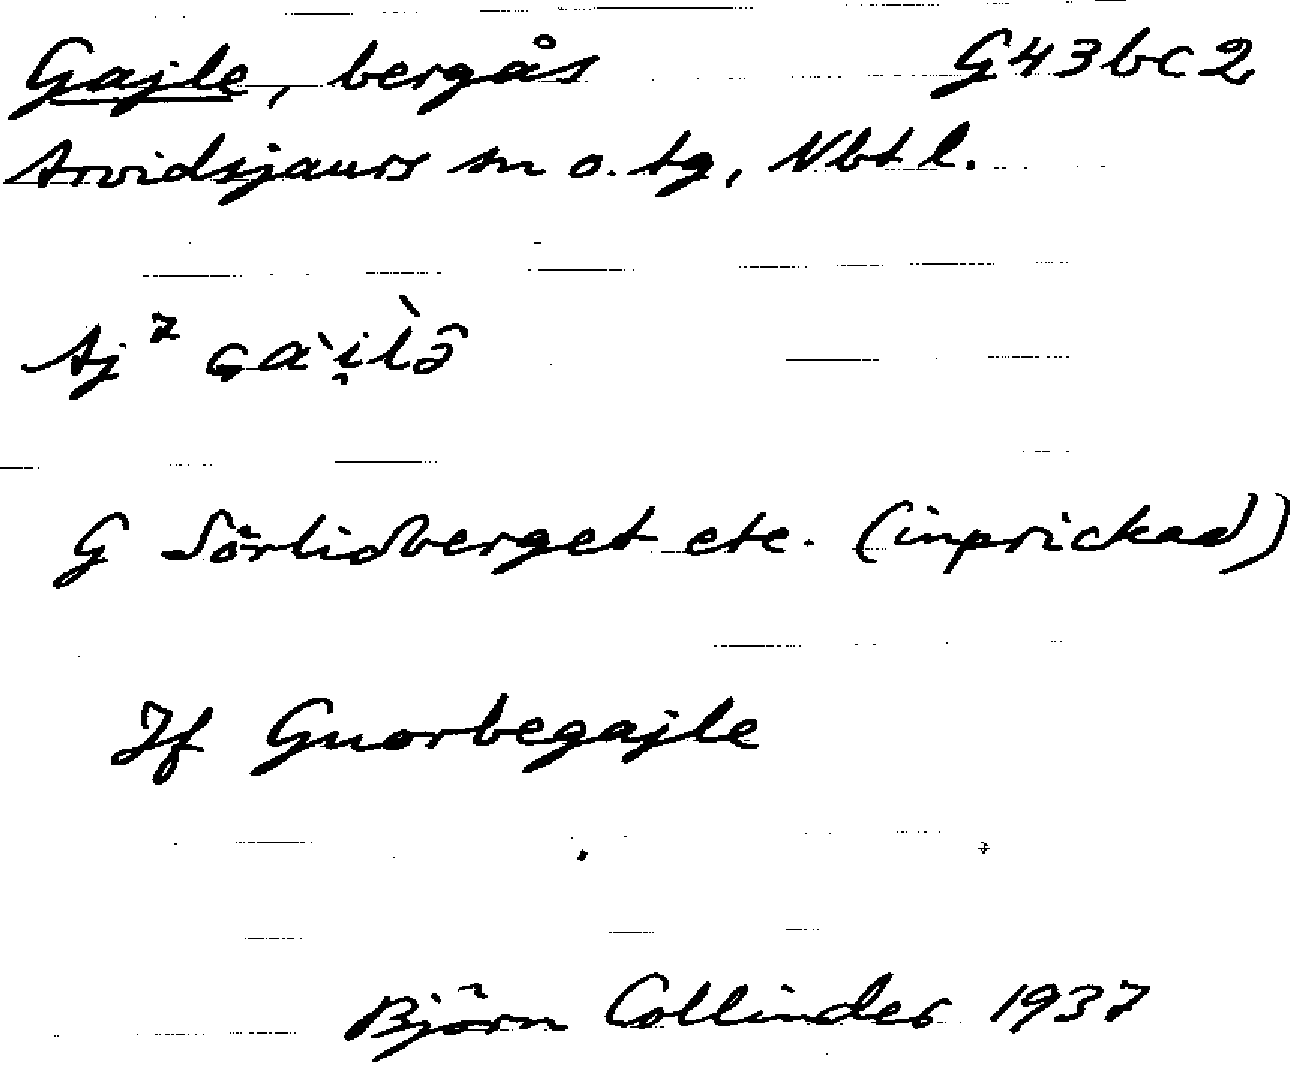 Gajle, bergås G43bc2
Arvidsjaurs sn o. tg, Nbt l.
Aj 7
G Sörlidberget etc. (inprickad)
Jf Gnorbegajle
Björn Collinder 1937